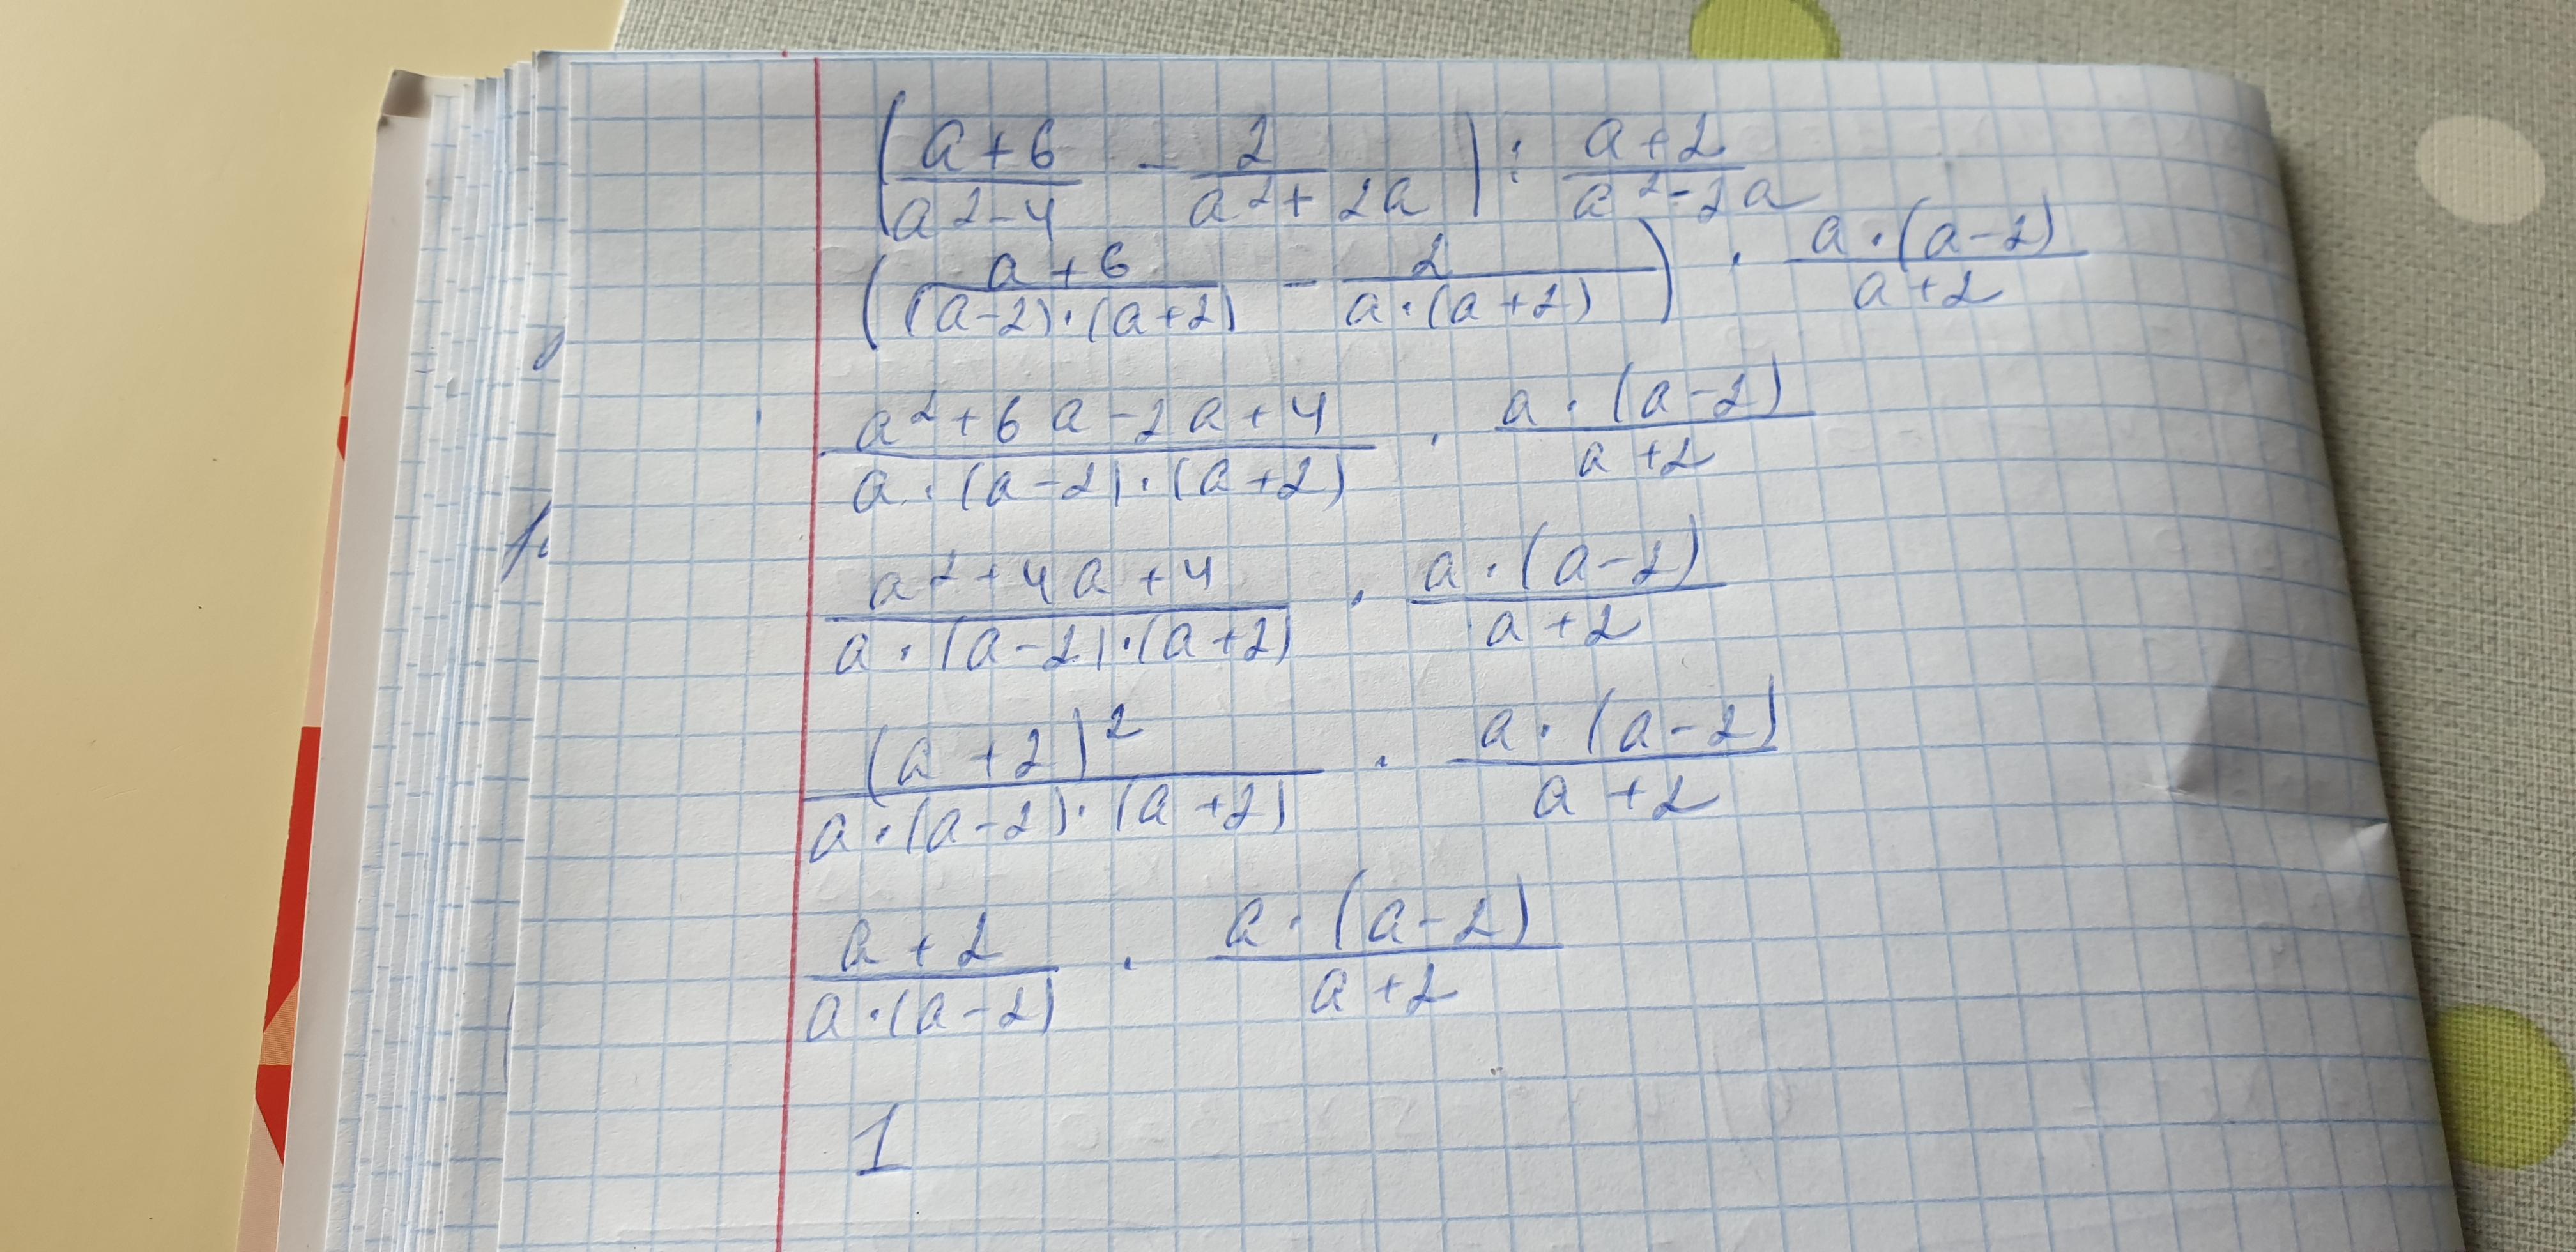 (a+6/a²-4 - 2/a²+2a) : a+2/a²-2a
(a+6/(a-2)·(a+2) - 2/a·(a+2)) · a·(a-2)/a+2
a²+6a-2a+4/a·(a-2)·(a+2) · a·(a-2)/a+2
a²+4a+4/a·(a-2)·(a+2) · a·(a-2)/a+2
(a+2)²/a·(a-2)·(a+2) · a·(a-2)/a+2
a+2/a·(a-2) · a·(a-2)/a+2
1